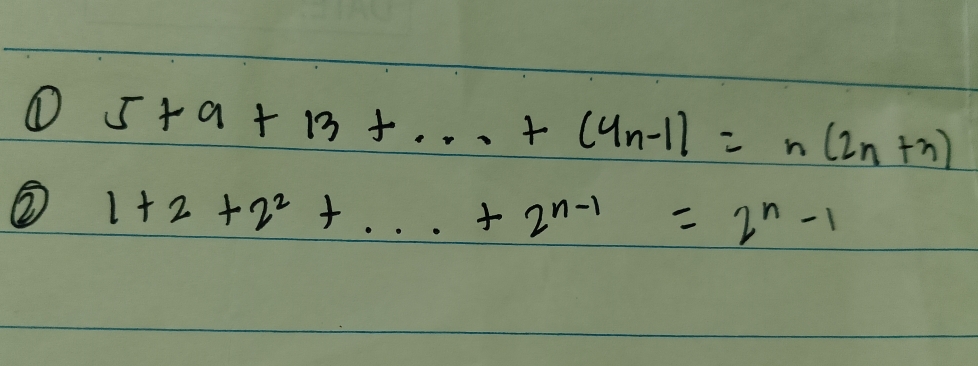 ① 5 + 9 + 13 + .... + (4n-1) = n(2n+n)
② 1 + 2 + 2² + .... + 2ⁿ⁻¹ = 2ⁿ - 1